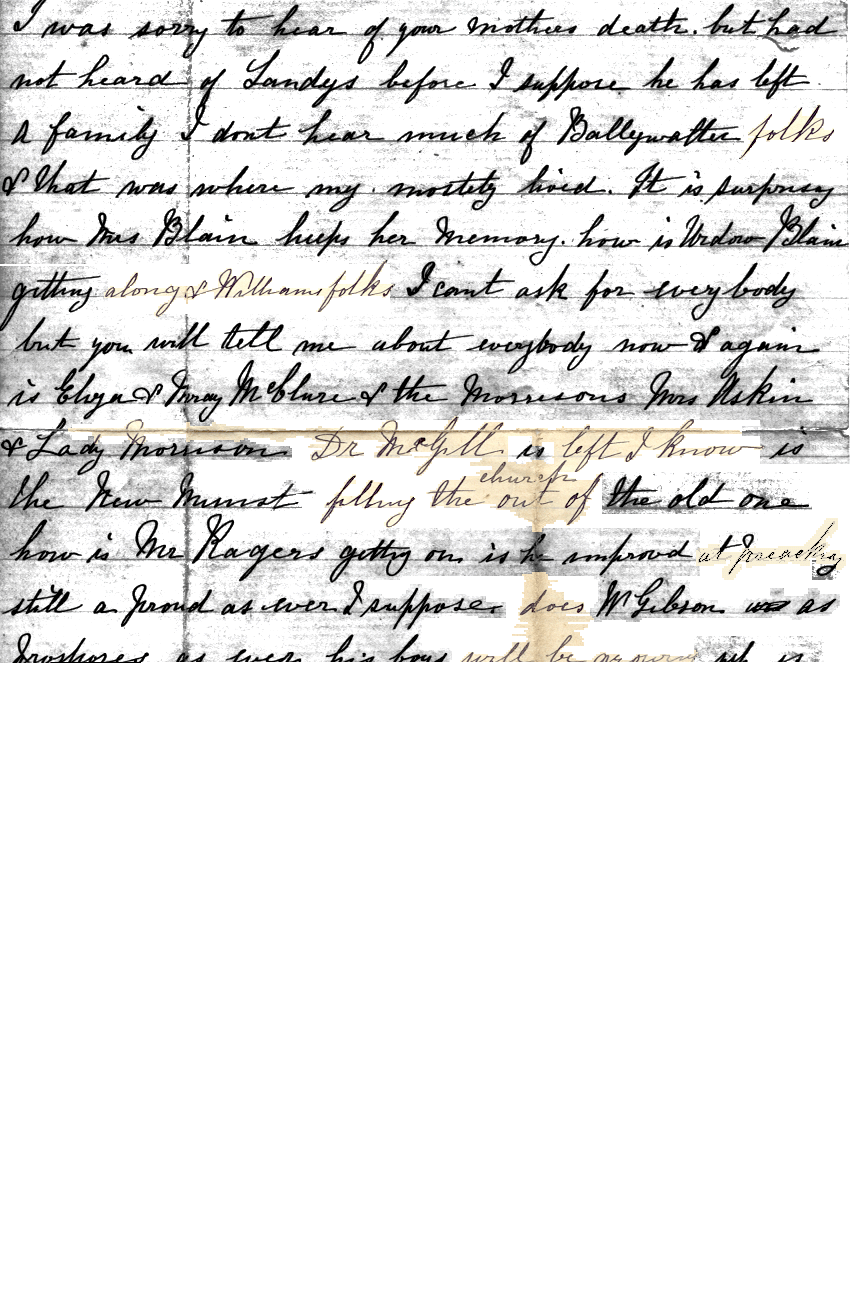 I was sorry to hear of your mothers death. but had
not heard of Sandys before I suppose he has left
a family I dont hear much of Ballywatter folks
& that was where my mostely lived. It is surprisng
how Mrs Blain keeps her memory. how is Widow Blain
gitting along & Williams folks I cant ask for everybody
but you will tell me about everybody now & again
is Eliza & McClure & the Morrisons Mrs Askin
& Lady Morrison Dr McGill is left I know is
the New filling the church out of the old one
how is Mr Ragers gitting on is he improvd at preaching
still a proud as ever I suppose does W Gibson as
as ever his boys will be up is